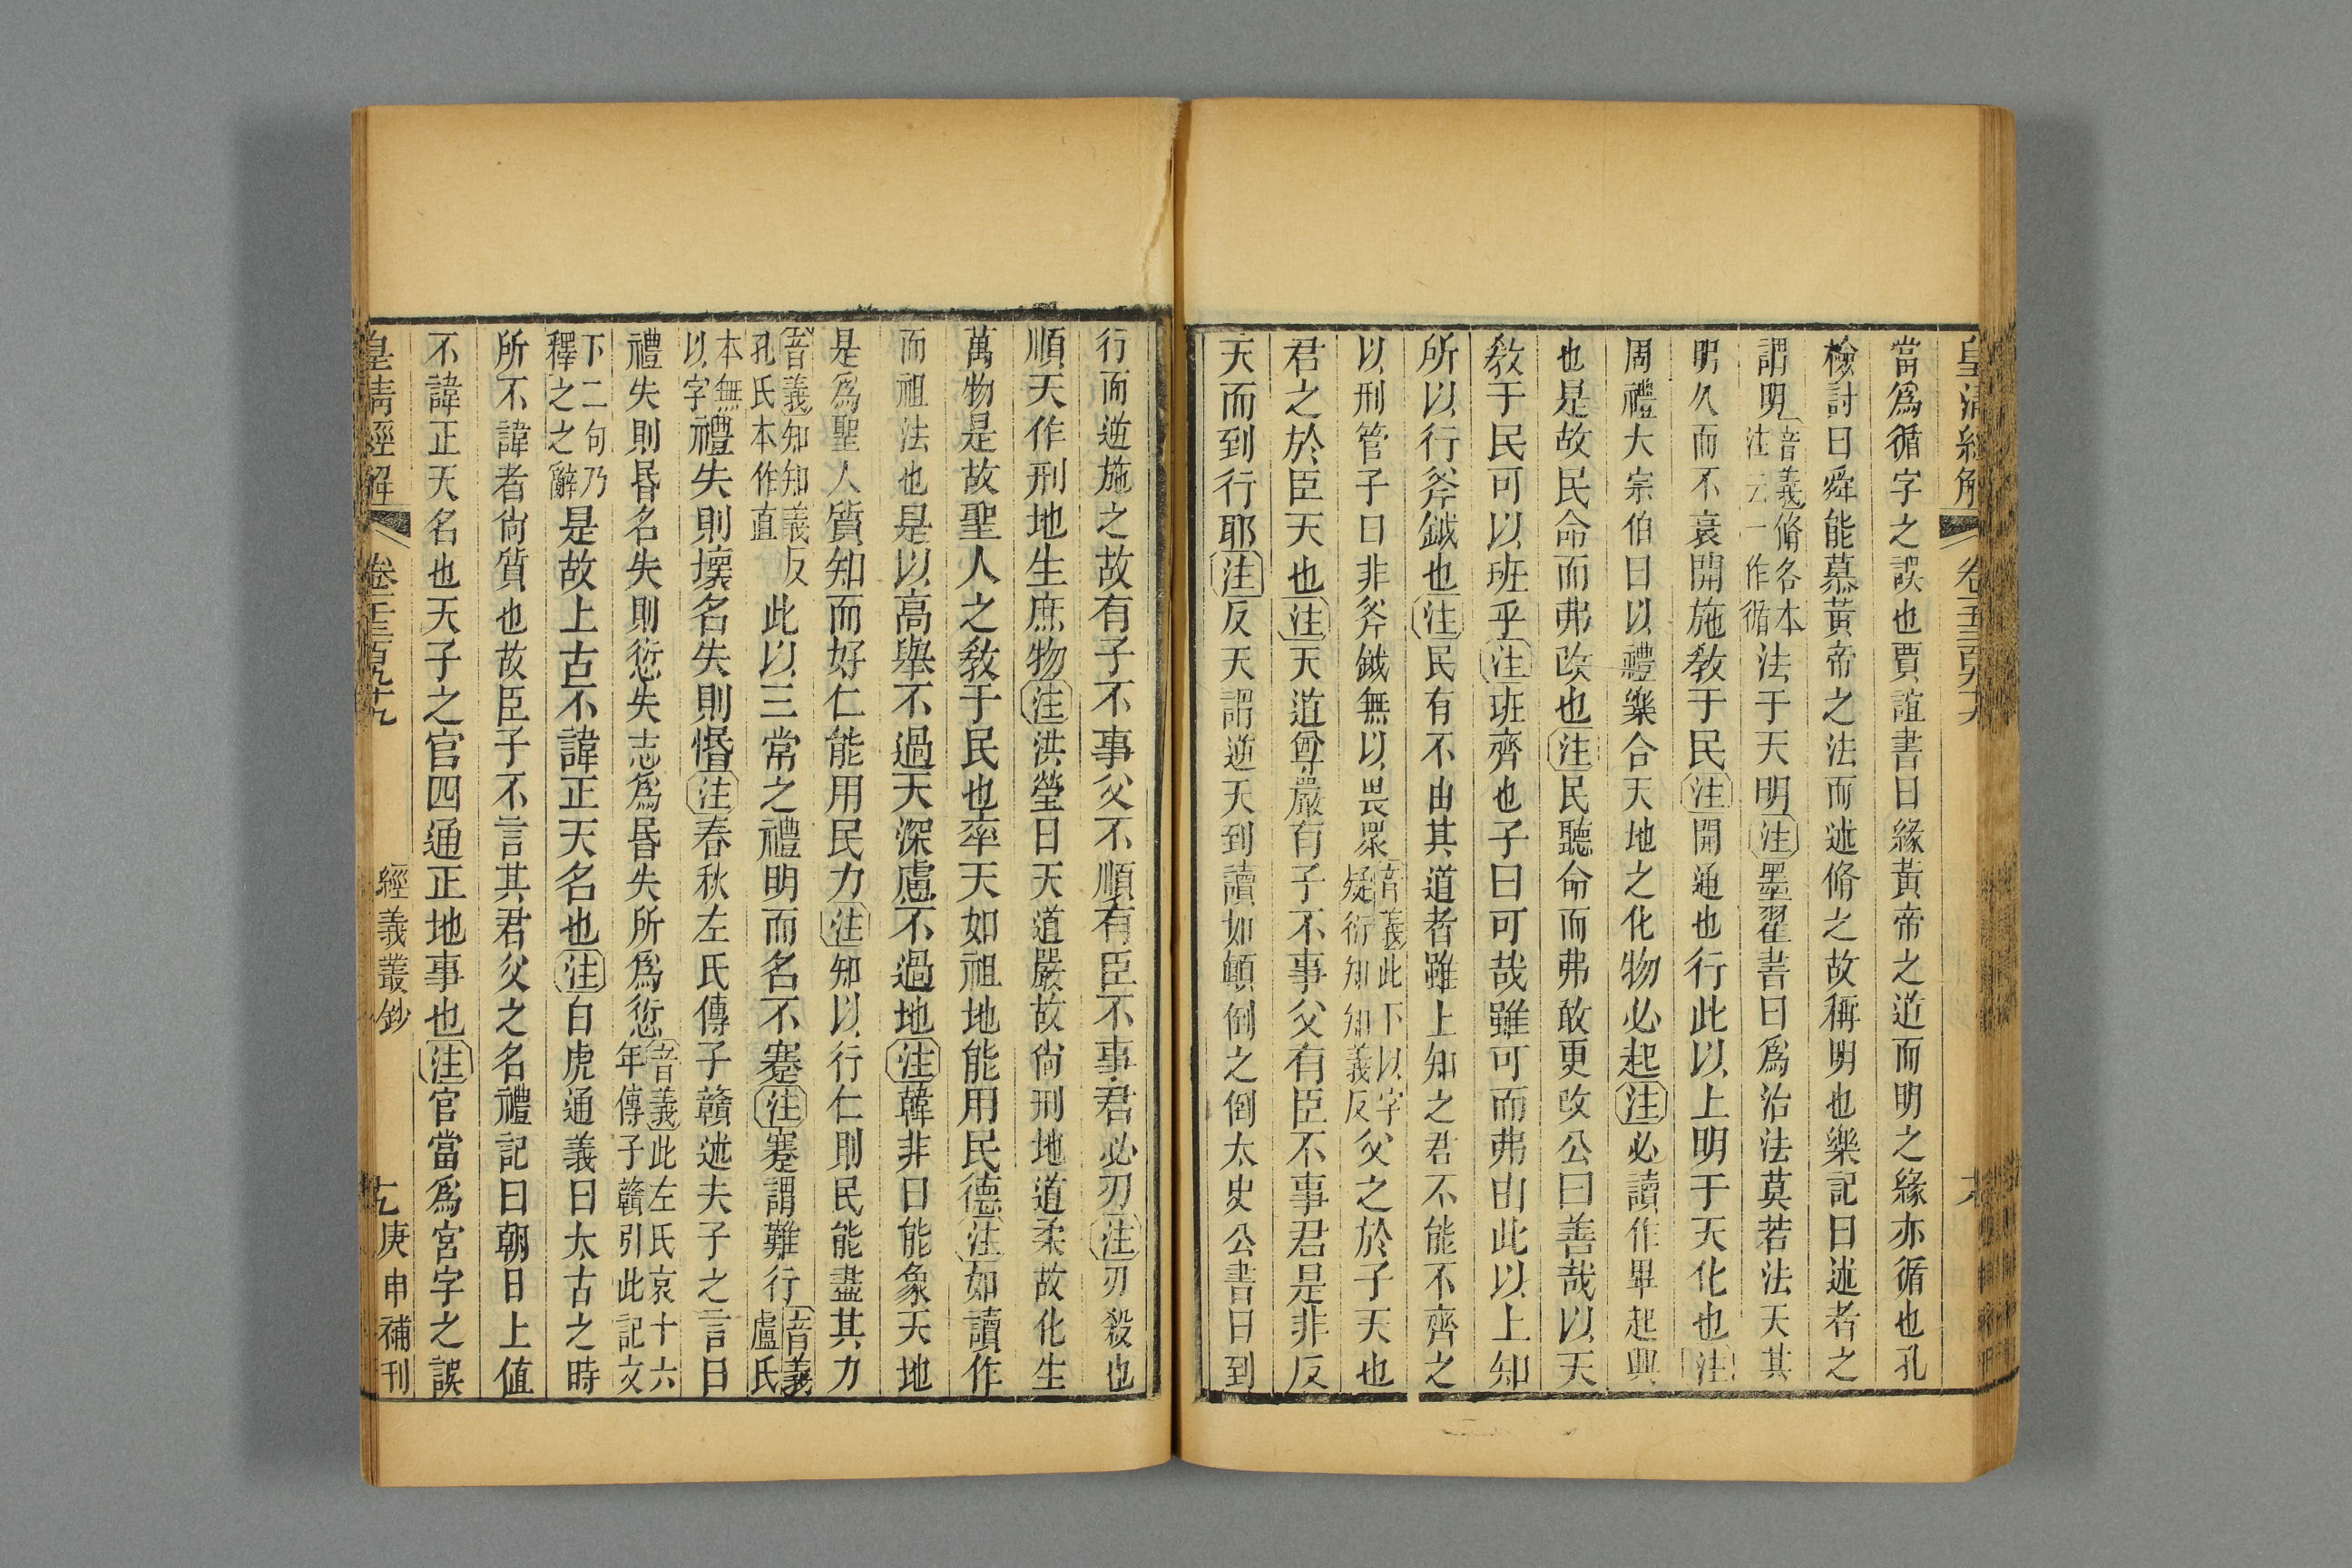 皇清經解
當爲循字之誤也賈誼書曰緣黃帝之道而明之緣亦循也孔
檢討曰舜能慕黃帝之法而述脩之故稱明也樂記曰述者之
謂明音義脩各本注云一作循法于天明注墨翟書曰爲治法莫若法天其
明久而不衰開施敎于民注開通也行此以上明于天化也注
周禮大宗伯曰以禮樂合天地之化物必起注必讀作畢起興
也是故民命而弗改也注民聽命而弗敢更改公曰善哉以天
敎于民可以班乎注班齊也子曰可哉雖可而弗由此以上知
所以行斧鉞也注民有不由其道者雖上知之君不能不齊之
以刑管子曰非斧鉞無以畏眾音義此下以字疑衍知知義反父之於子天也
君之於臣天也注天道尊嚴有子不事父有臣不事君是非反
天而到行耶注反天謂逆天到讀如顚倒之倒太史公書曰到
行而逆施之故有子不事父不順有臣不事君必刃注刃殺也
順天作刑地生庶物注洪瑩曰天道嚴故尙刑地道柔故化生
萬物是故聖人之敎于民也率天如祖地能用民德注如讀作
而祖法也是以高舉不過天深慮不過地注韓非曰能象天地
是爲聖人質知而好仁能用民力注知以行仁則民能盡其力
音義知知義反孔氏本作直此以三常之禮明而名不蹇注蹇謂難行音義盧氏
本無以字禮失則壞名失則惛注春秋左氏傳子贛述夫子之言曰
禮失則昬名失則愆失志爲昬失所爲愆音義此左氏哀十六年傳子贛引此記文
下二句乃釋之之辭是故上古不諱正天名也注白虎通義曰太古之時
所不諱者尙質也故臣子不言其君父之名禮記曰朝日上值
不諱正天名也天子之官四通正地事也注官當爲宮字之誤
皇清經解
經義叢鈔
庚申補刊